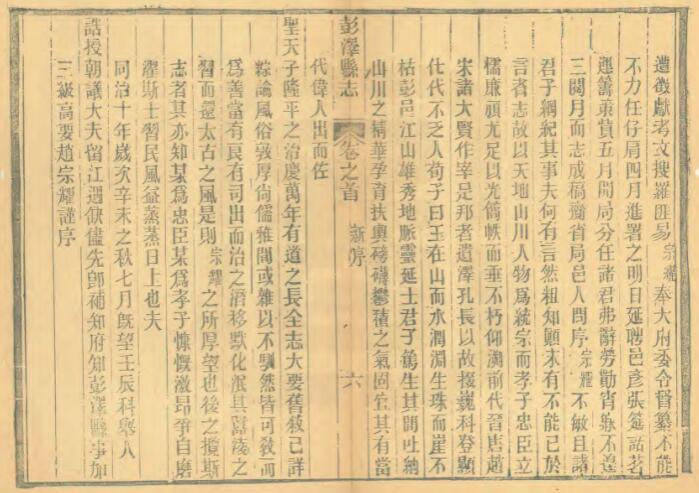 遺徵獻考文搜羅匪易宗耀奉大府委令督纂不能
不力任仔肩四月進署之明日延聘邑彥張筵詔茗
運籌策貲五月開局分任諸君弗辭勞勩宵
三閱月而志成稿齎省局邑人問序宗耀不敏且諸
君子綱紀其事夫何有言然粗知顛末有不能已於
言者志故以天地山川人物為統宗而孝子忠臣立
懦廉頑尤足以光簡帙而垂不朽仰溯前代晉唐趙
宋諸大賢作宰是邦者遺澤孔長以故掇巍科登顯
仕代不乏人荀子曰玉在山而木潤淵生珠而崖不
枯彭邑江山雄秀地脈靈延士君子篤生其間吐納
山川之精華孕育扶輿磅礴鬱積之氣固宜其有當
彭澤縣志
卷之首
新序
六
代偉人出而佐
聖天子隆平之治慶萬年有道之長全志大要舊敘已詳
綜論風俗敦厚尚儒雅間或雜以不馴然皆可教而
為善當有良有司出而治之潛移默化泯其囂凌之
習而還太古之風是則宗耀之所厚望也後之攬斯
志者其亦知某為忠臣某為孝子慷慨激昂爭自磨
濯斯士習民風益蒸蒸日上也夫
同治十年歲次辛未之秋七月既望壬辰科舉人
誥授朝議大夫留江遇缺儘先卽補知府知彭澤縣事加
三級高要趙宗耀謹序